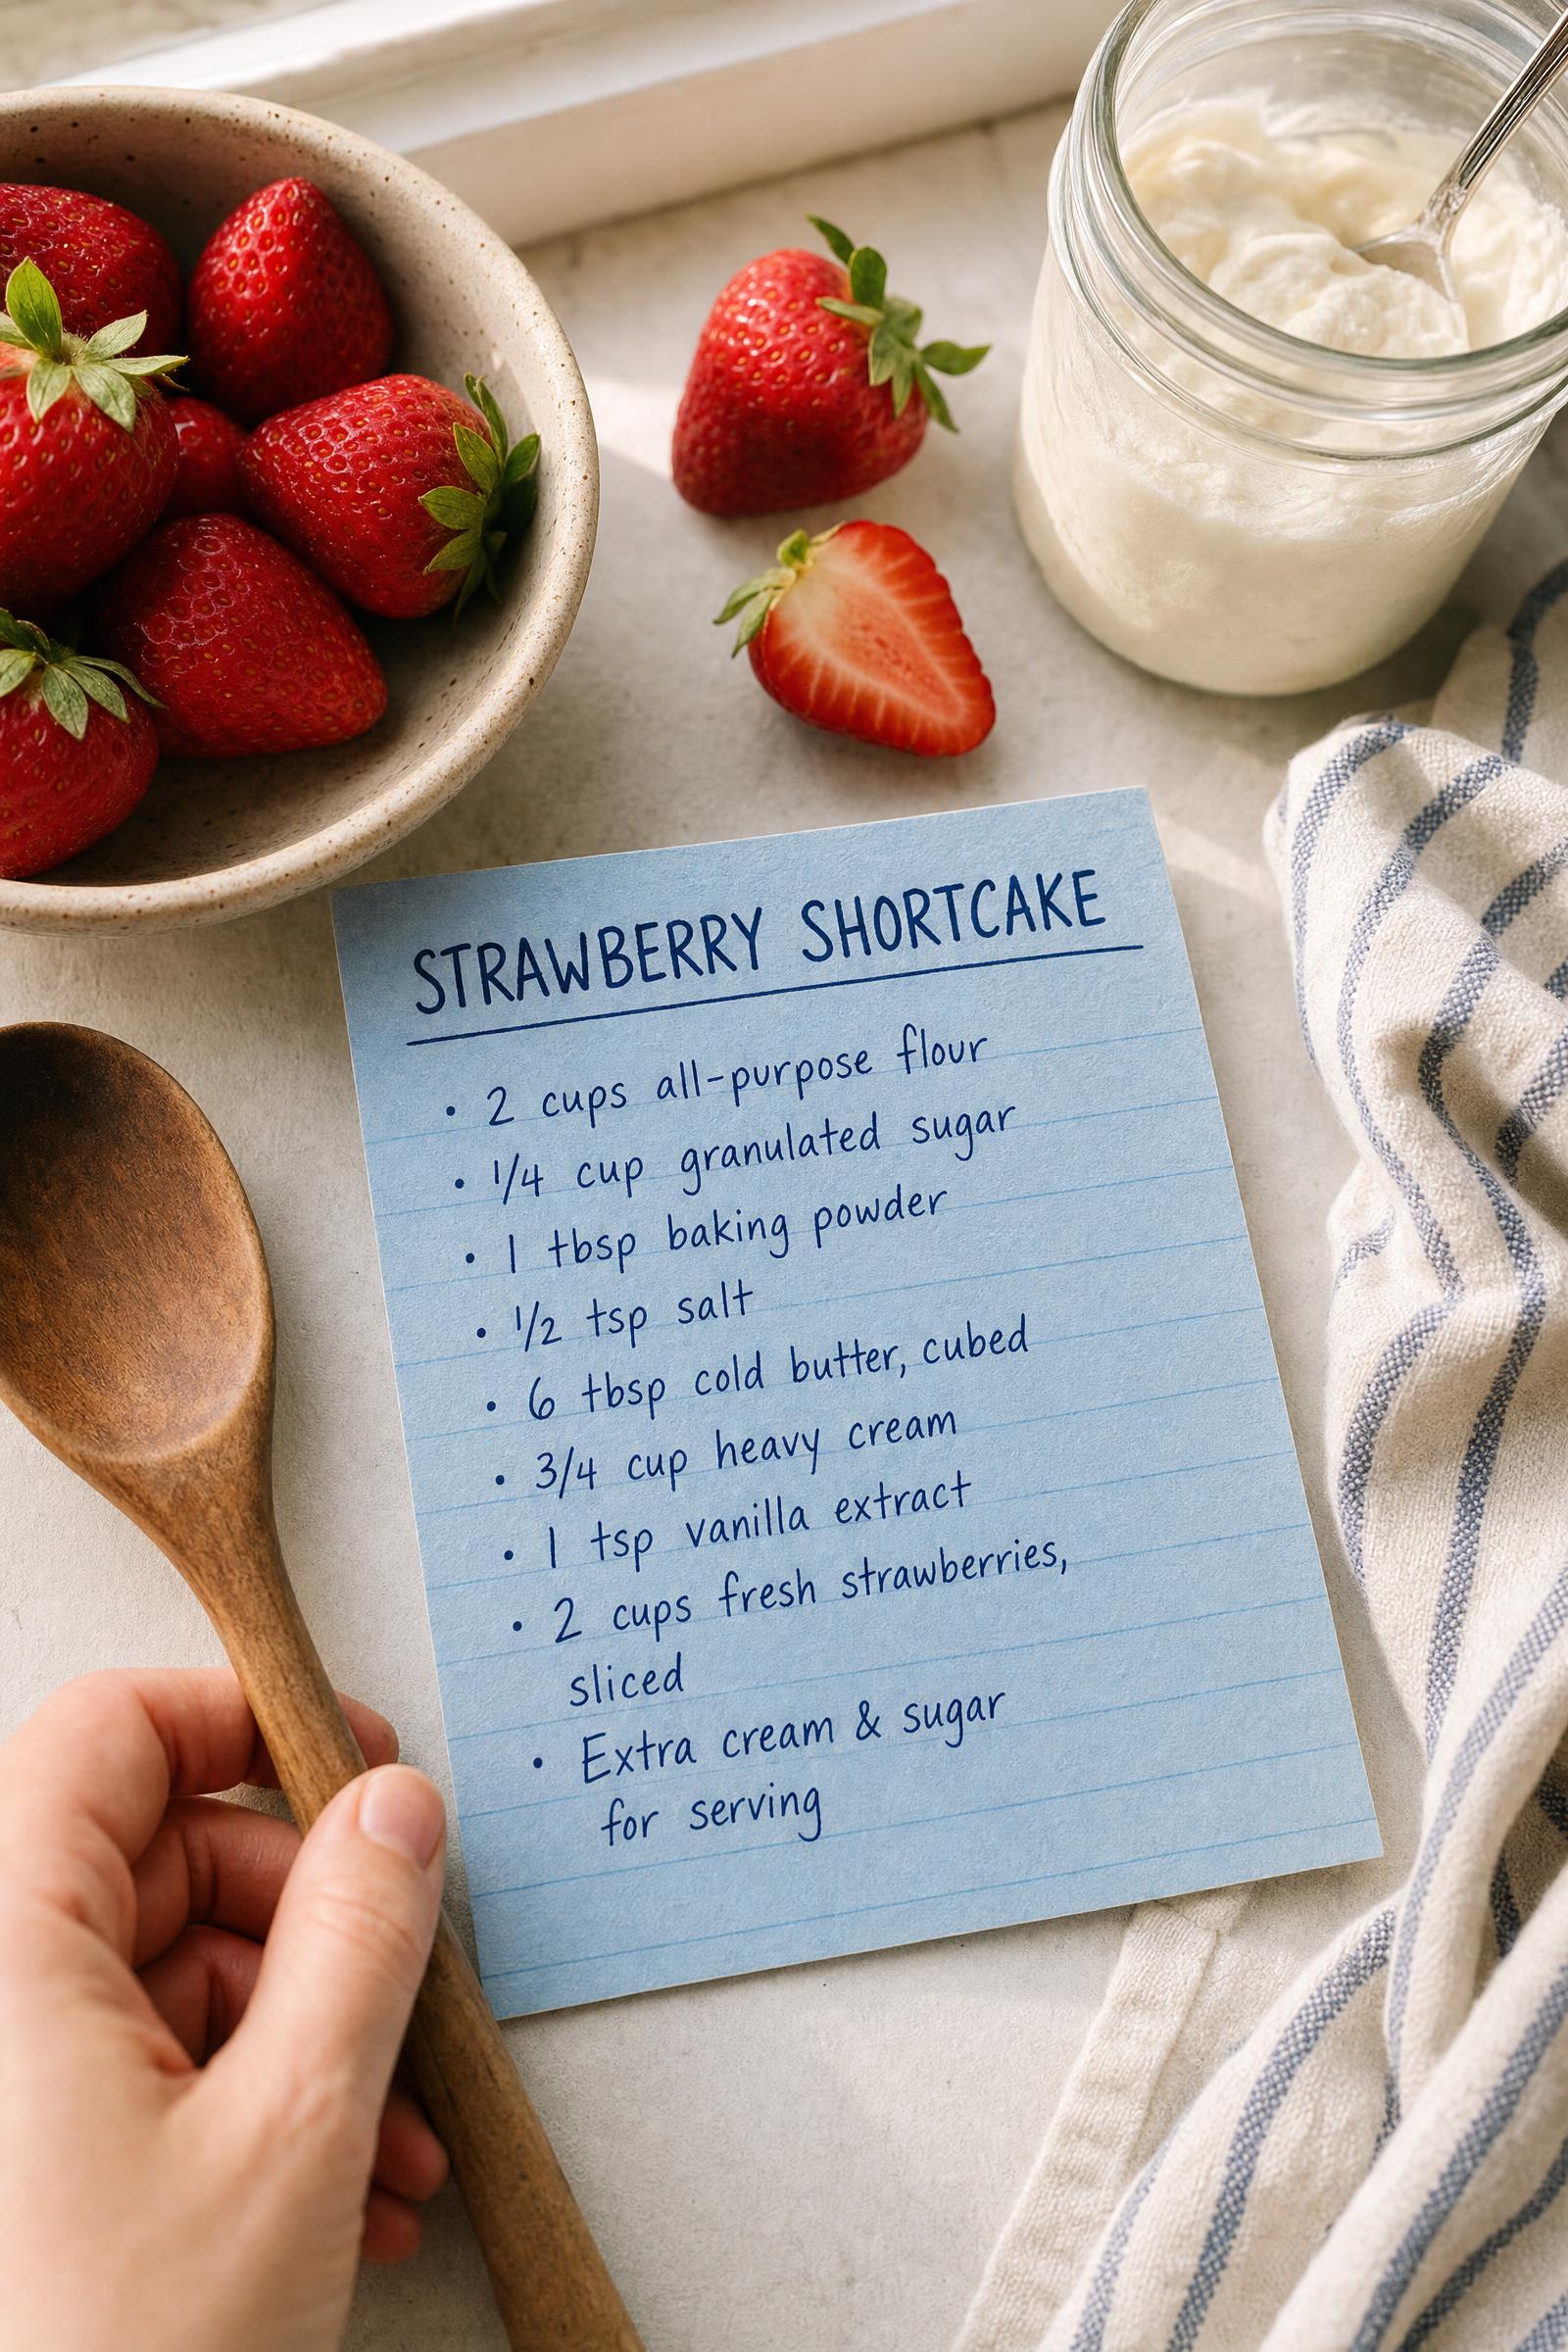 STRAWBERRY SHORTCAKE
• 2 cups all-purpose flour
• 1/4 cup granulated sugar
• 1 tbsp baking powder
• 1/2 tsp salt
• 6 tbsp cold butter, cubed
• 3/4 cup heavy cream
• 1 tsp vanilla extract
• 2 cups fresh strawberries,
sliced
• Extra cream & sugar
for serving